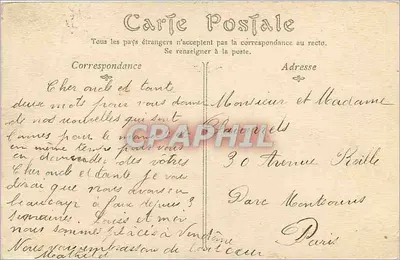 Carte Postale
Tous les pays étrangers n'acceptent pas la correspondance au recto.
Se renseigner à la poste.
Correspondance
Adresse
Cher oncle et tante
deux mots pour vous donner
de nos nouvelles qui sont
bonnes pour le moment
en même temps pour vous
en demander des vôtres
Cher oncle et tante je vous
dirai que nous avons eu
beaucoup à faire depuis 3
semaines. Louis et moi
nous sommes placés à Vendôme
Nous vous embrassons de tout coeur
Mathilde
Monsieur et Madame
30 Avenue Reille
Parc Montsouris
Paris
CPAPHIL